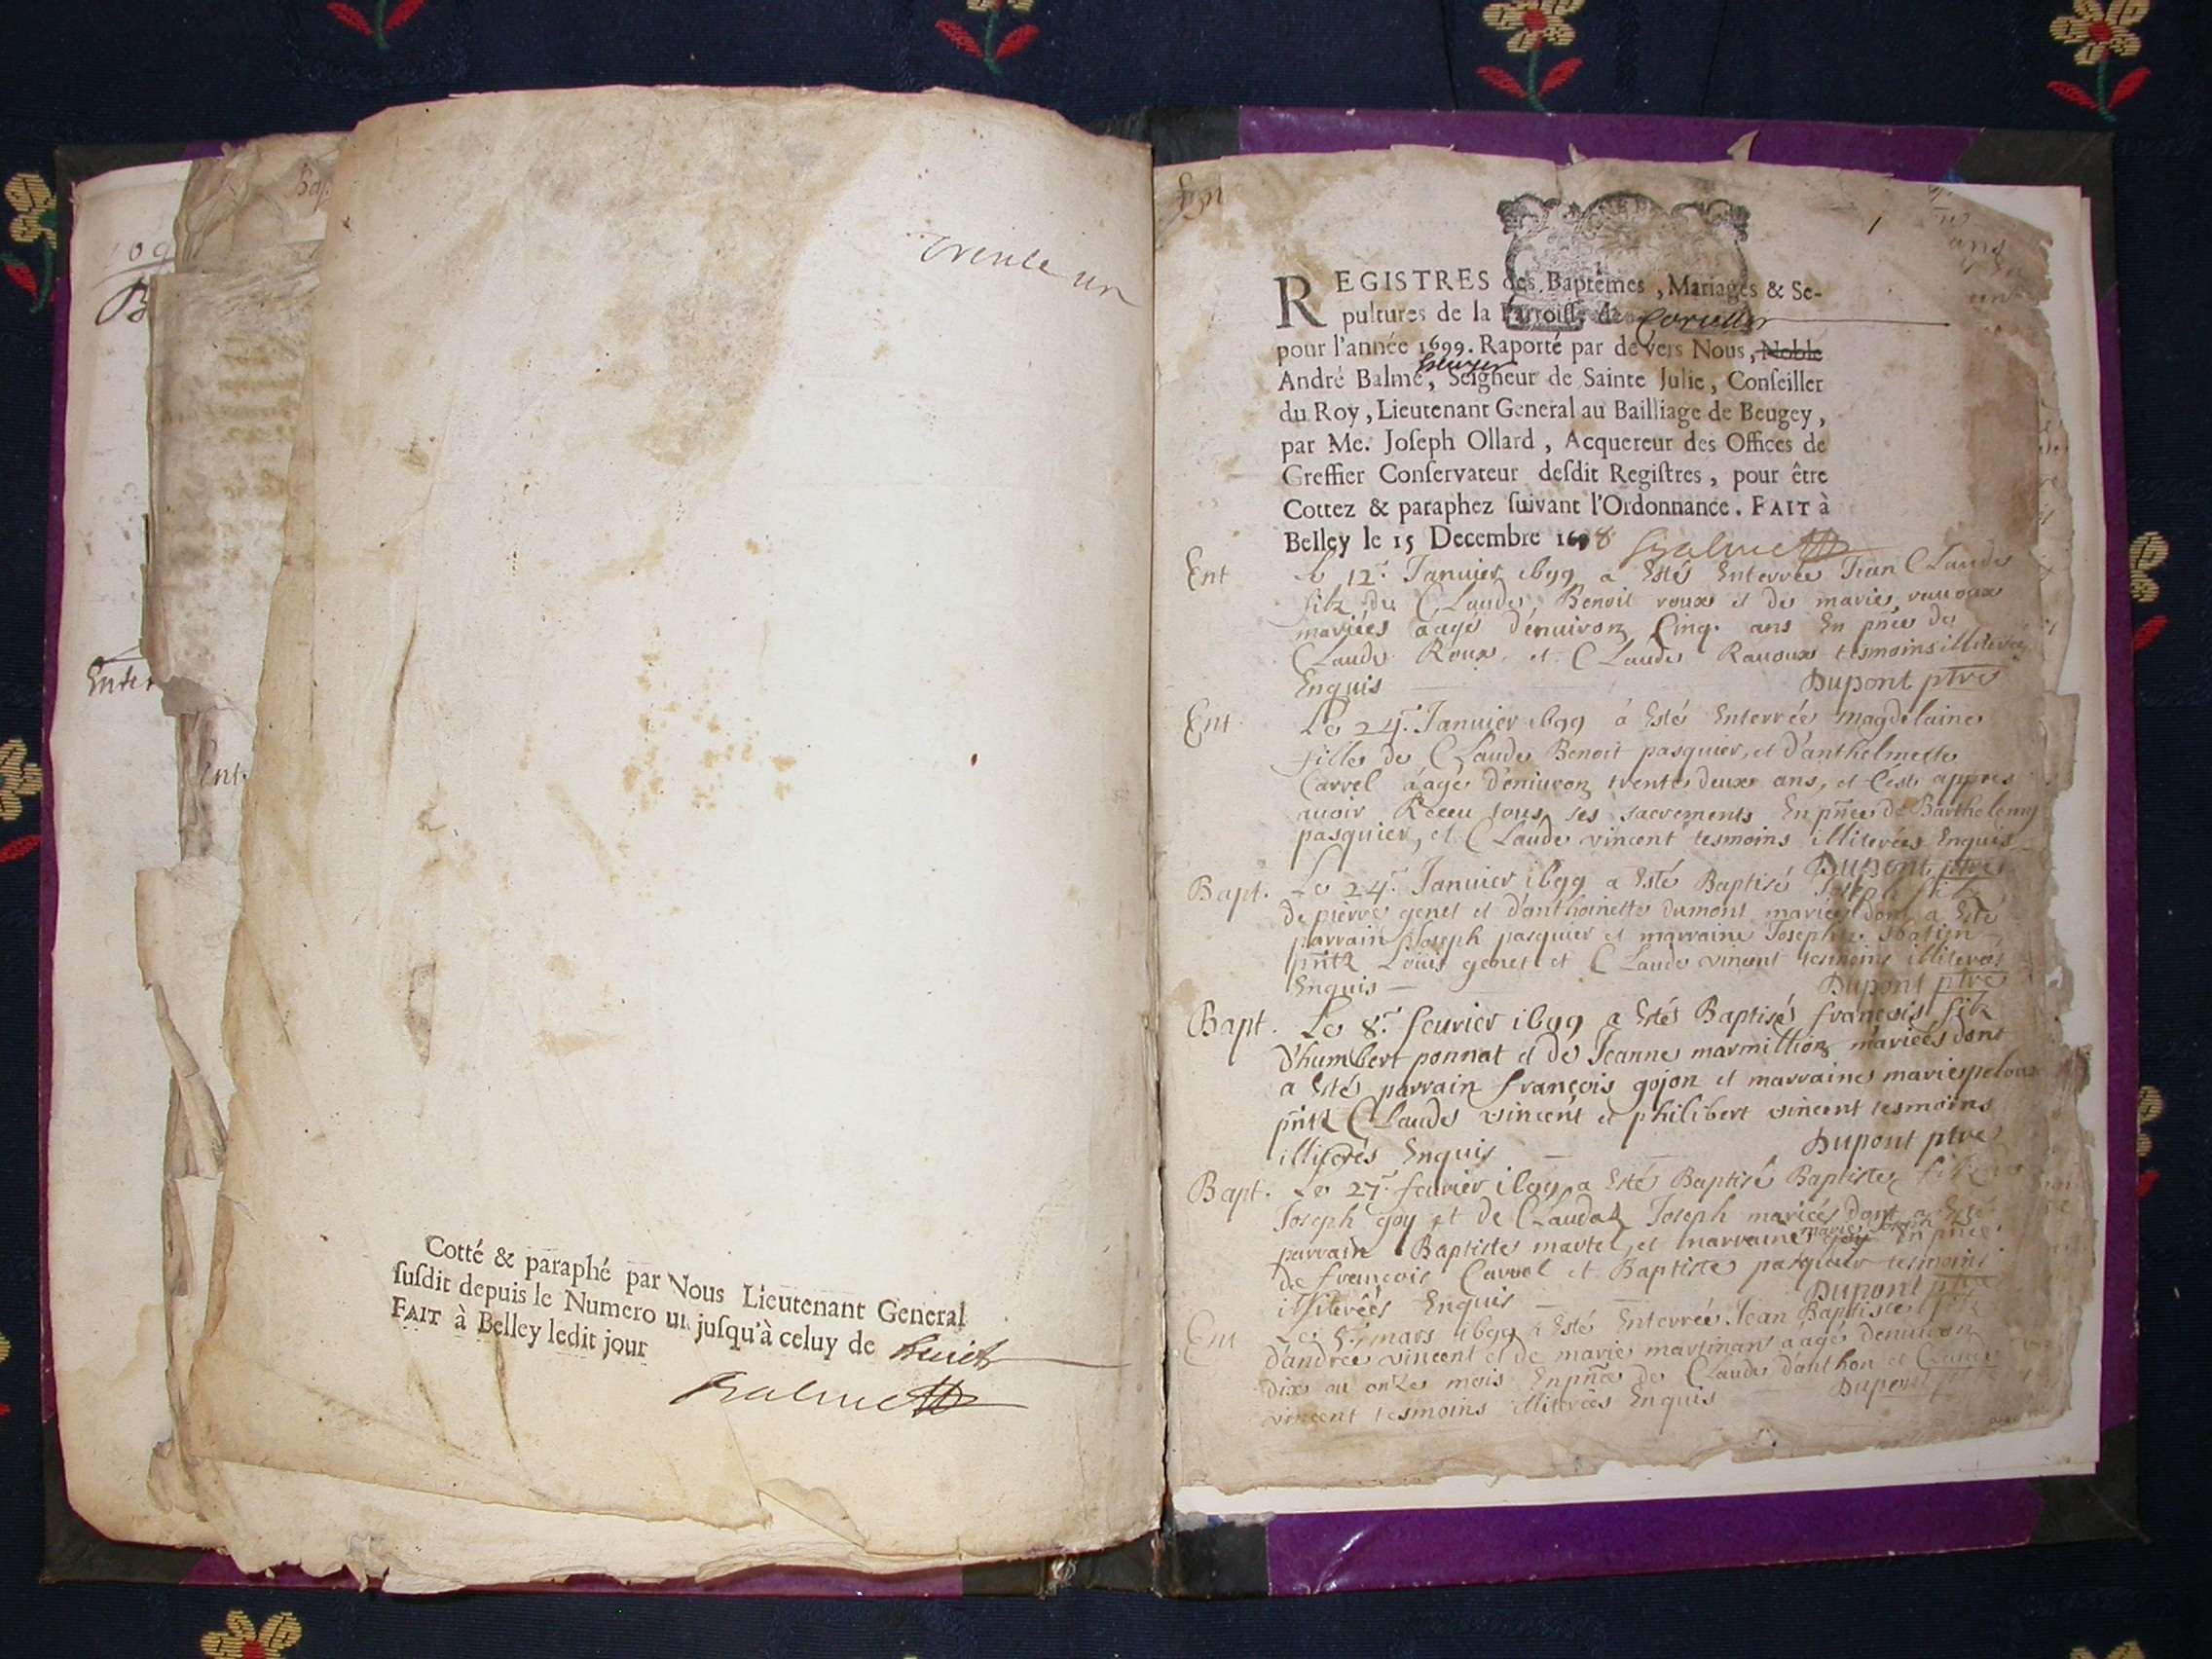 Bap
Ent
trente un
Cotté & paraphé par Nous Lieutenant General
susdit depuis le Numero un jusqu'à celuy de huict
FAIT à Belley ledit jour
Balme
REGISTRES des Baptêmes, Mariages & Se-
pultures de la Parroisse de
pour l'année 1699. Raporté par devers Nous, Noble
André Balme, Seigneur de Sainte Julie, Conseiller
du Roy, Lieutenant General au Bailliage de Beugey,
par Me. Joseph Ollard, Acquereur des Offices de
Greffier Conservateur desdit Registres, pour être
Cottez & paraphez suivant l'Ordonnance. FAIT à
Belley le 15 Decembre 1698 Balme
Ent Le 12e Januier 1699 a Esté Enterrée Jean Claude
filz du Claude Benoit roux et de marie rauoux
mariées aagé denuiron Cinq ans En pñce de
Claude Roux et Claude Rauoux tesmoins
Enquis Dupont ptre
Ent Le 24e Januier 1699 á Esté Enterrée magdelaine
fille de Claude Benoit pasquier, et d'anthelmette
Carrel áagé d'enuiron trente deux ans, et C'est appres
auoir Receu tous ses sacrements En pñce de Barthelemy
pasquier, et Claude vincent tesmoins illiterées Enquis
Dupont ptre
Bapt. Le 24e Januier 1699 a Esté Baptisé Joseph filz
de pierre genet et d'anthoinette dumont mariées dont a Esté
parrain Joseph pasquier et marraine Josephe
pñtz Loüis genet et Claude vincent tesmoins illiteres
Enquis Dupont ptre
Bapt. Le 8e feurier 1699 a Estés Baptisés françois filz
D'humbert ponnat et de Jeanne marmillion mariées dont
a Estés parrain françois gojon et marraine marie peloux
pñtz Claude vincent et philibert vincent tesmoins
illiterés Enquis Dupont ptre
Bapt. Le 27e feurier 1699 a Esté Baptisé Baptiste filz
Joseph goy et de Claudaz Joseph mariées dont a Esté
parrain Baptiste martel, et marraine marie En pñce
de françois Carrel et Baptiste pasquier tesmoins
illiterées Enquis Dupont ptre
Ent Le mars 1699 a Esté Enterrée Jean Baptiste filz
D'andrée vincent et de marie martinant áagé denuiron
dix ou onze mois En pñce de Claude d'anthon et Claude
vincent tesmoins illiterées Enquis Dupont